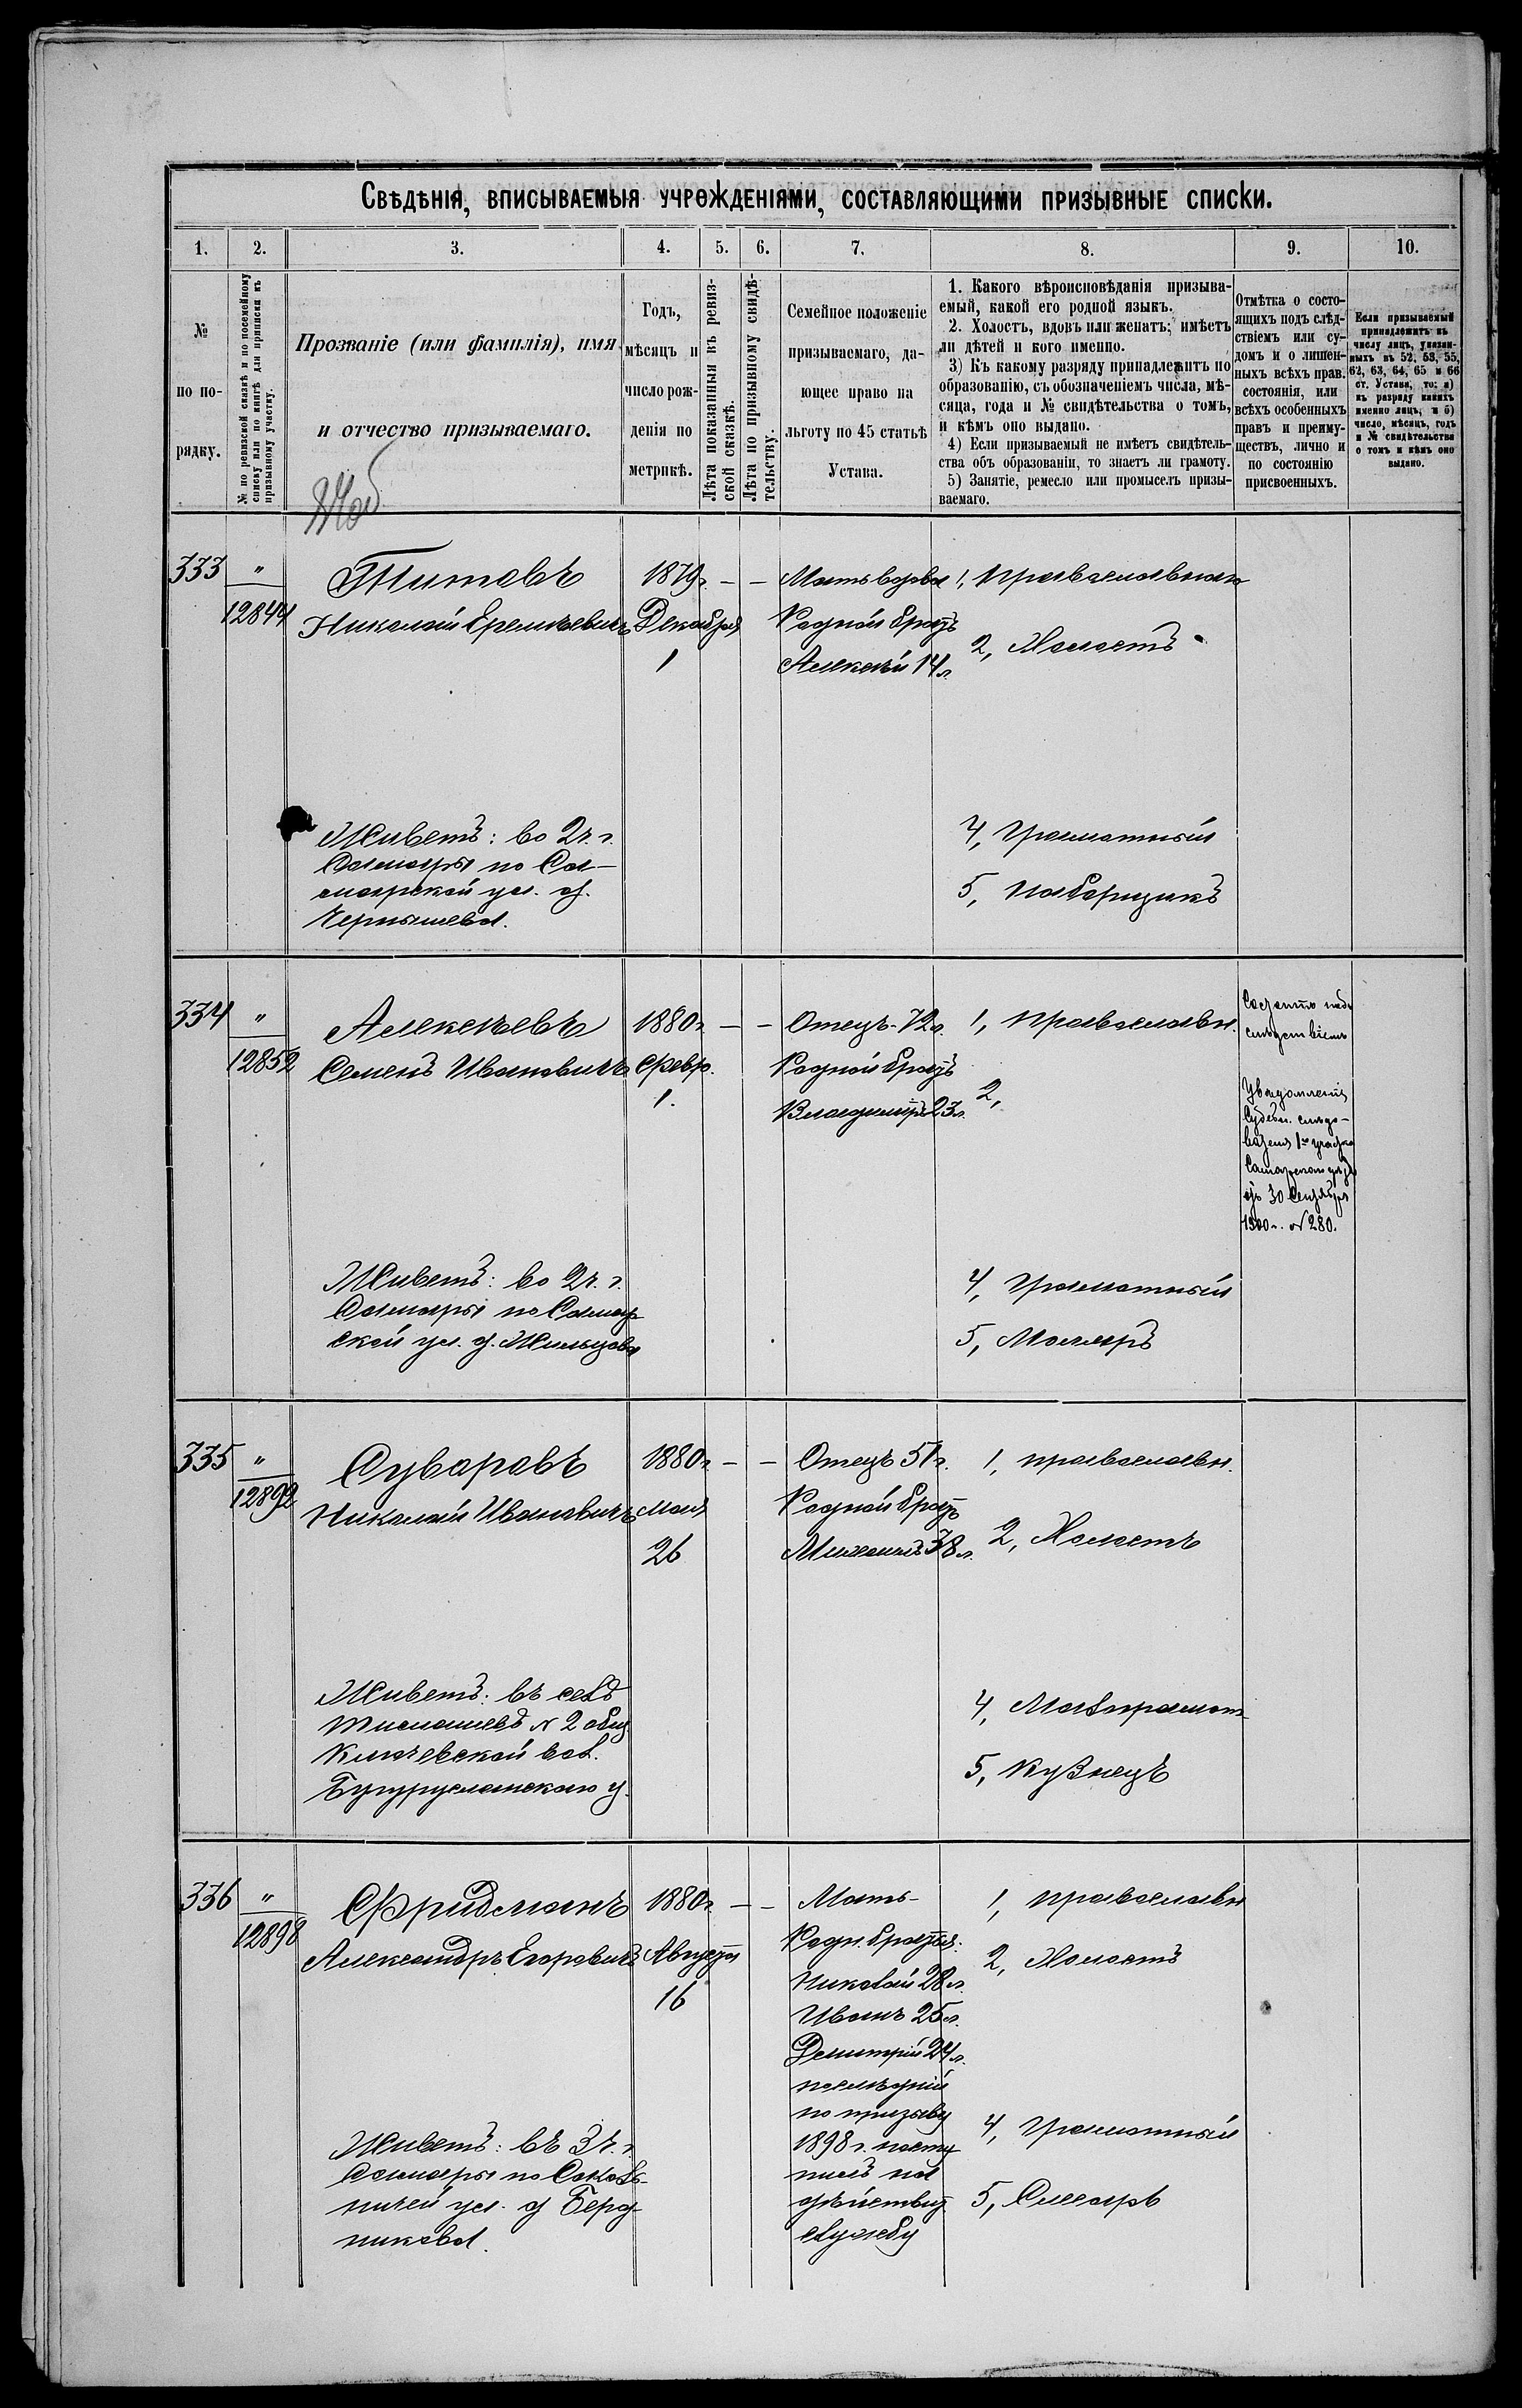 Свѣдѣнія, вписываемыя учрежденіями, составляющими призывные списки.
1. 2. 3. 4. 5. 6. 7. 8. 9. 10.
№
по по-
рядку.
№ по ревизской сказкѣ и по посемейному
списку или по книгѣ для приписки къ
призывному участку.
Прозваніе (или фамилія), имя
и отчество призываемаго.
Годъ,
мѣсяцъ и
число рож-
денія по
метрикѣ.
Лѣта показанныя въ ревиз-
ской сказкѣ.
Лѣта по призывному свидѣ-
тельству.
Семейное положеніе
призываемаго, да-
ющее право на
льготу по 45 статьѣ
Устава.
1. Какого вѣроисповѣданія призыва-
емый, какой его родной языкъ.
2. Холостъ, вдовъ или женатъ; имѣетъ
ли дѣтей и кого именно.
3) Къ какому разряду принадлежитъ по
образованію, съ обозначеніемъ числа, мѣ-
сяца, года и № свидѣтельства о томъ,
и кѣмъ оно выдано.
4) Если призываемый не имѣетъ свидѣтель-
ства объ образованіи, то знаетъ ли грамоту.
5) Занятіе, ремесло или промыселъ призы-
ваемаго.
Отмѣтка о состо-
ящихъ подъ слѣд-
ствіемъ или су-
домъ и о лишен-
ныхъ всѣхъ прав.
состоянія, или
всѣхъ особенныхъ
правъ и преиму-
ществъ, лично и
по состоянію
присвоенныхъ.
Если призываемый
принадлежитъ къ
числу лицъ, указан-
ныхъ въ 52, 53, 55,
62, 63, 64, 65 и 66
ст. Устава, то: а)
къ разряду какихъ
именно лицъ, и б)
число, мѣсяцъ, годъ
и № свидѣтельства
о томъ и кѣмъ оно
выдано.
333
"
12844
Титовъ
Николай Еремѣевичъ
1879г.
Декабря
1
— —
Мать вдова
Родной братъ
Алексѣй 14л.
1, православнаго
2, Холостъ
Живетъ: во 2ч. г.
Самары по Са-
марской ул. д.
Чернышева.
4, Грамотный
5, Наборщикъ
334
"
12852
Алексѣевъ
Семенъ Ивановичъ
1880г.
Февр.
1.
— —
Отецъ-72л.
Родной братъ
Владимиръ 23л.
1, православн.
2,
Состоитъ подъ
слѣдствіемъ
Увѣдомленіе
Судебн. слѣдо-
вателя 1го участка
Самарскаго уѣзда
отъ 30 Сентября
1900г. № 280.
Живетъ: во 2ч. г.
Самары по Самар
ской ул. д. Жильцова
4, Грамотный
5, Маляръ
335
"
12892
Суваровъ
Николай Ивановичъ
1880г.
мая
26
— —
Отецъ 51г.
Родной братъ
Михаилъ 38л.
1, православн.
2, Холостъ
Живетъ: въ селѣ
Тимашевѣ № 2 общ.
Ключевской вол.
Бугурусланскаго у.
4, Малограмот-
5, Кузнецъ
336
"
12898
Фридманъ
Александръ Егоровичъ
1880г.
Августа
16
— —
Мать-
Родн. братья:
Николай 28л.
Иванъ 25л.
Дмитрій 24л.
послѣдній
по призыву
1898г. посту
пилъ на
дѣйствит
службу
1, православн
2, Холостъ
Живетъ: въ 3ч. г.
Самары по Соколь-
ничей ул. д Берд
никова.
4, Грамотный
5, Слесарь